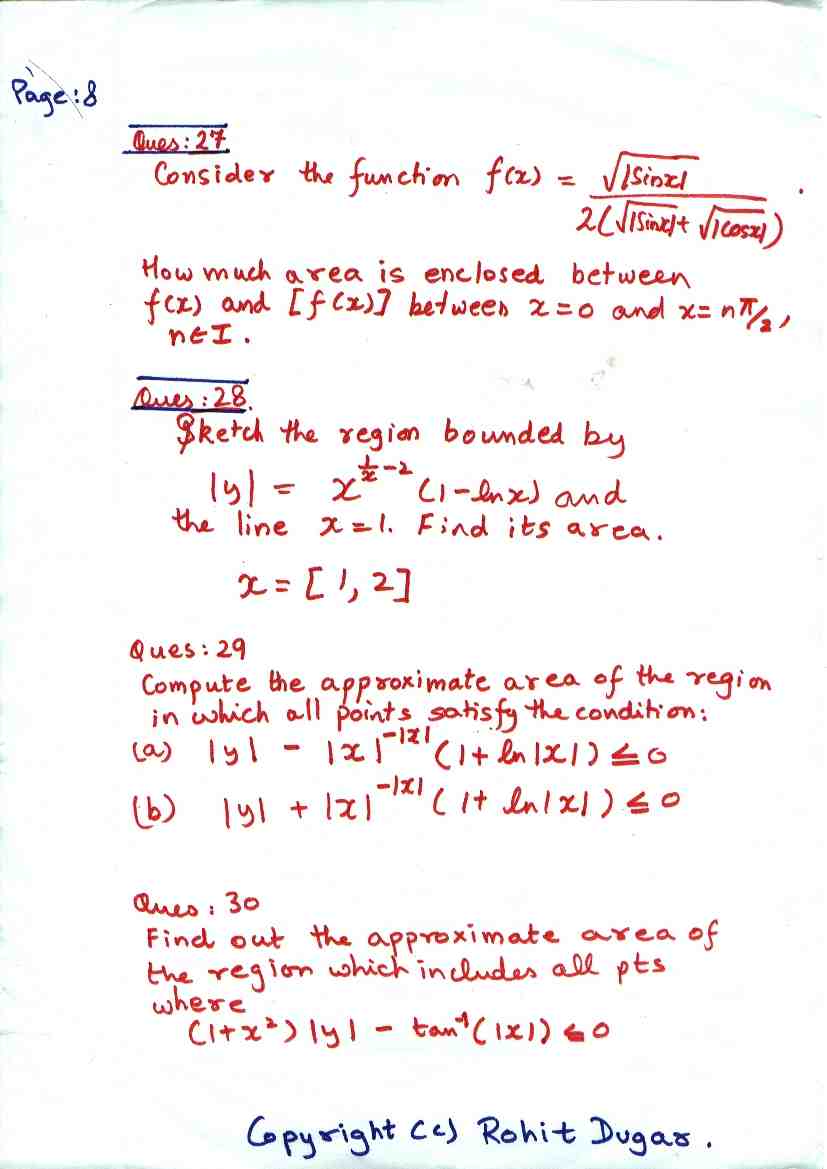 Page:8
Ques: 27
Consider the function f(x) = √|Sinx| / 2(√|Sinx| + √|cosx|) .
How much area is enclosed between
f(x) and [f(x)] between x=0 and x= nπ/2,
n∈I.
Ques: 28.
Sketch the region bounded by
|y| = x^(1/x - 2) (1-lnx) and
the line x=1. Find its area.
x = [1, 2]
Ques: 29
Compute the approximate area of the region
in which all points satisfy the condition:
(a) |y| - |x|^(-|x|) (1+ ln|x|) ≤ 0
(b) |y| + |x|^(-|x|) (1+ ln|x|) ≤ 0
Ques: 30
Find out the approximate area of
the region which includes all pts
where
(1+x²)|y| - tan⁻¹(|x|) ≤ 0
Copyright (c) Rohit Dugar.